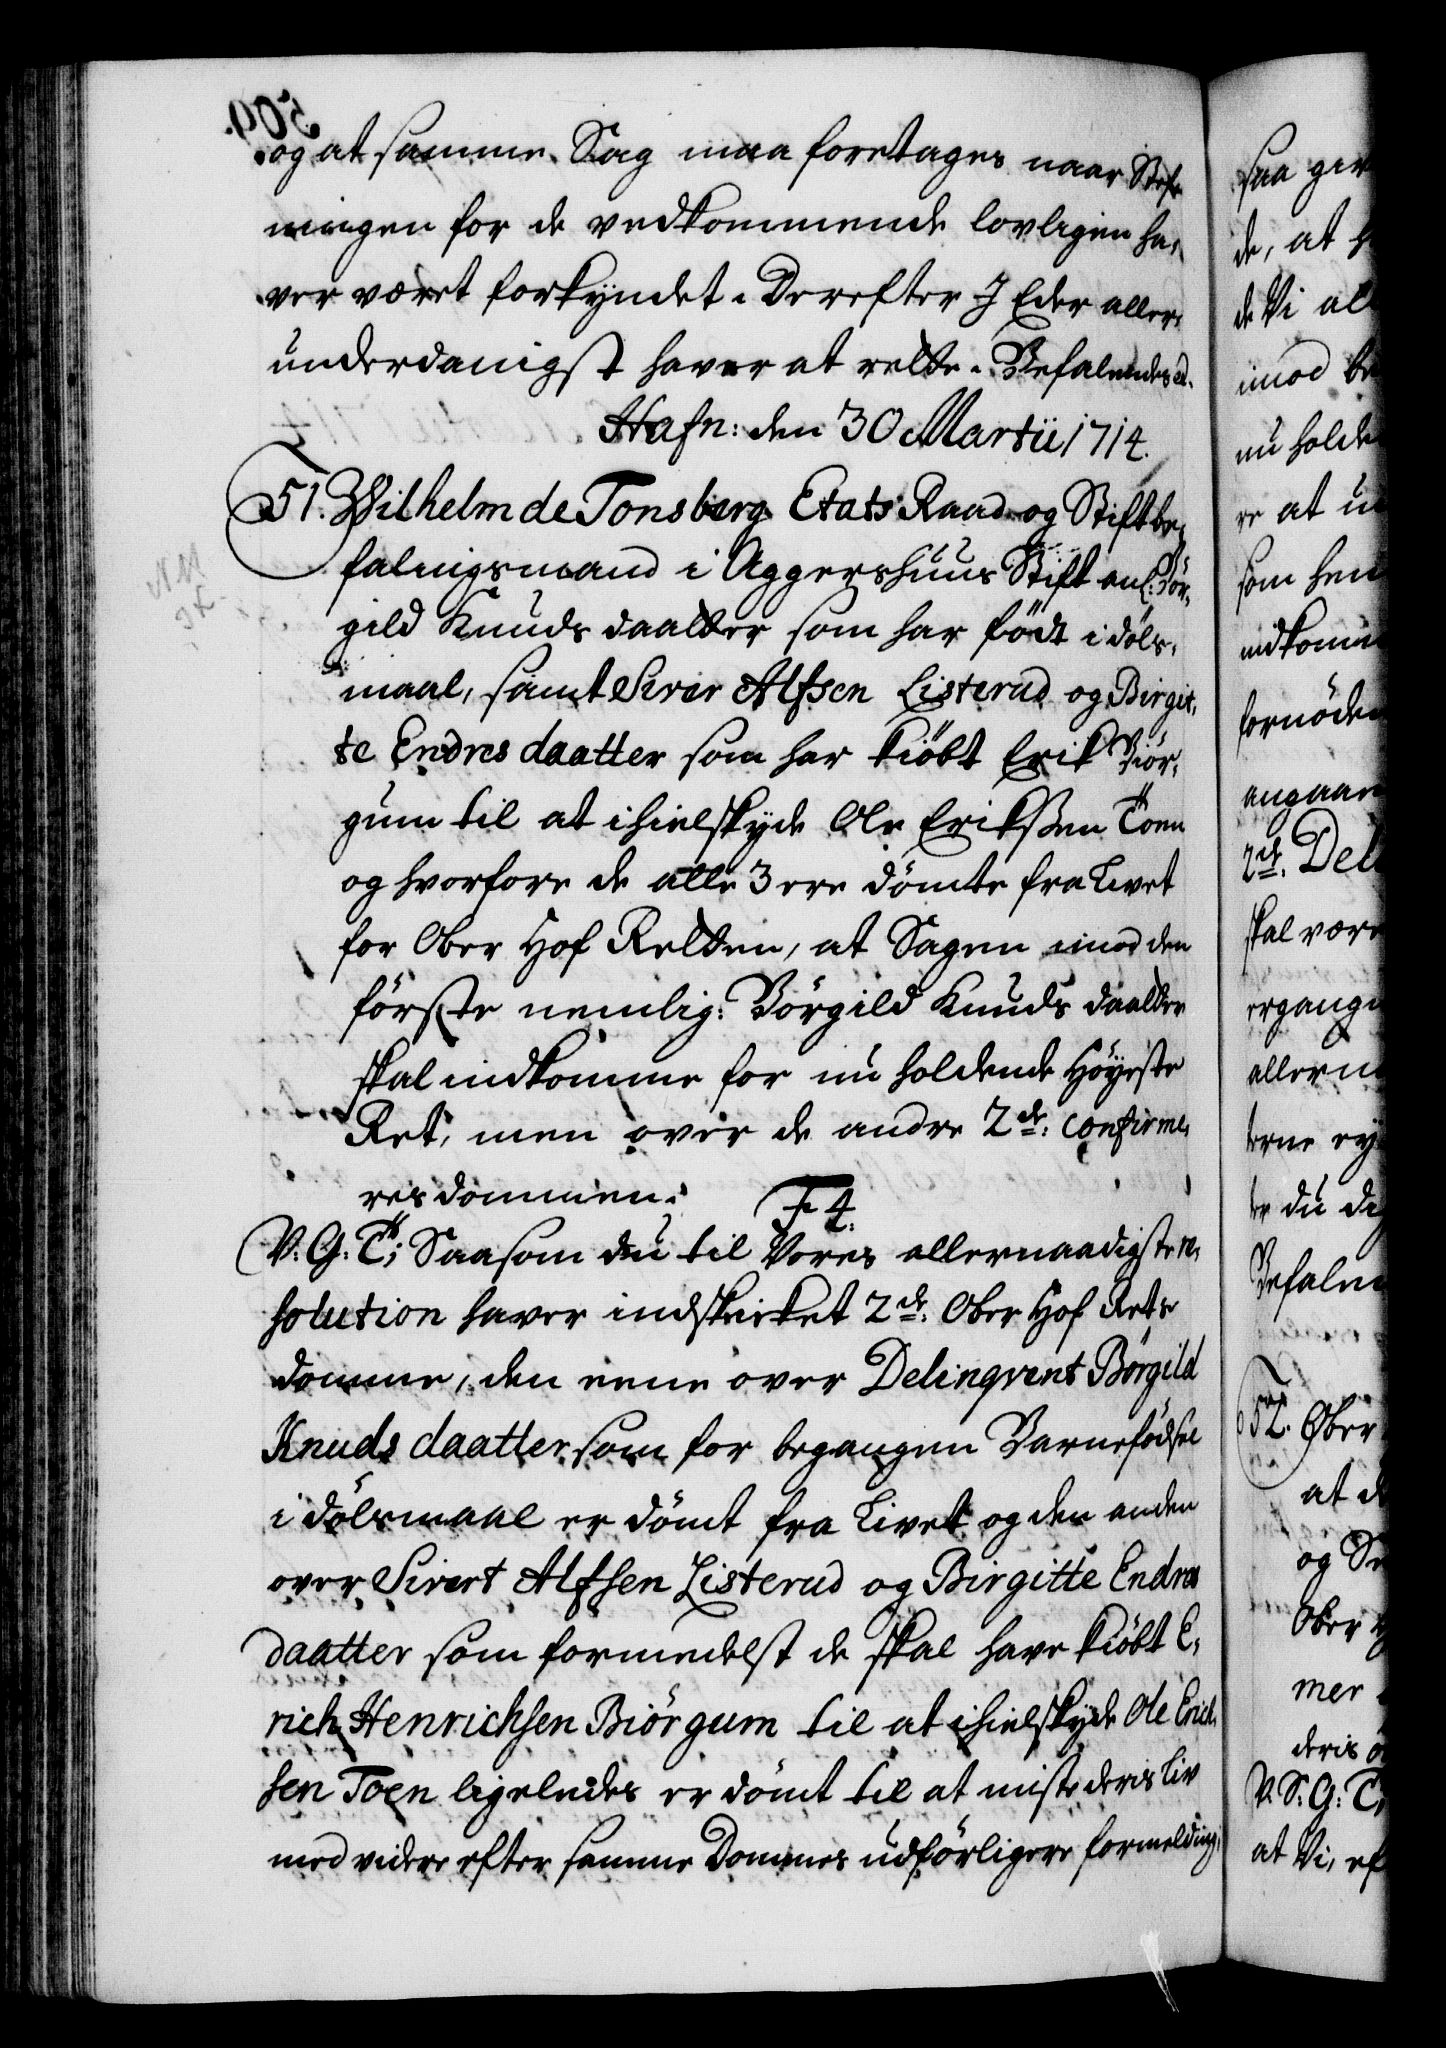 509.
og at samme Sag maa foretages naar Stef-
ningen for de vedkommende lovligen ha-
ver været forkyndet. Derefter I Eder aller-
underdanigst haver at rette. Befalendes
Hafn: den 30 Martii 1714.
51. Wilhelm de Tonsberg Etats Raad og Stiftbe-
falingsmand i Aggershuus Stift anl: Bör-
gild Knuds daatter som har födt i döls-
maal, samt Siver Alfsen Listerud og Birgit-
te Endres daatter som har kiöbt Erik Biör-
gum til at ihielskyde Ole Erikssen Toen
og hvorfore de alle 3 ere dömte fra Livet
for Ober Hof Retten, at Sagen imod den
förste nemlig: Börgild Knuds daatter
skal indkomme for nu holdende Höyeste
Ret, men over de andre 2de: confirme-
res dommen.
F 4.
V. G: T; Saasom du til Vores allernaadigste re-
solution haver indskicket 2de: Ober Hof Rets
domme, den eene over Delinqvent Börgild
Knuds daatter som for begangen Barnefödsel
i dölsmaal er dömt fra Livet og den anden
over Sivert Alfsen Listerud og Birgitte Endres
daatter som formedelst de skal have kiöbt E-
rich Henrichsen Biörgum til at ihielskyde Ole Erich-
sen Toen ligeledes er dömt til at miste deris Liv
med videre efter samme Dommes udförligere formelding,
saa giv
de, at
de Vi all
imod
nu holde
re at
som hen
indkomm
fornöden
angaar
2de: Del
skal være
ergange
allern
terne
du
Befalen
52. Ober
at d
og
Ober
mer
deris
V. S: G: T;
at Vi, ef